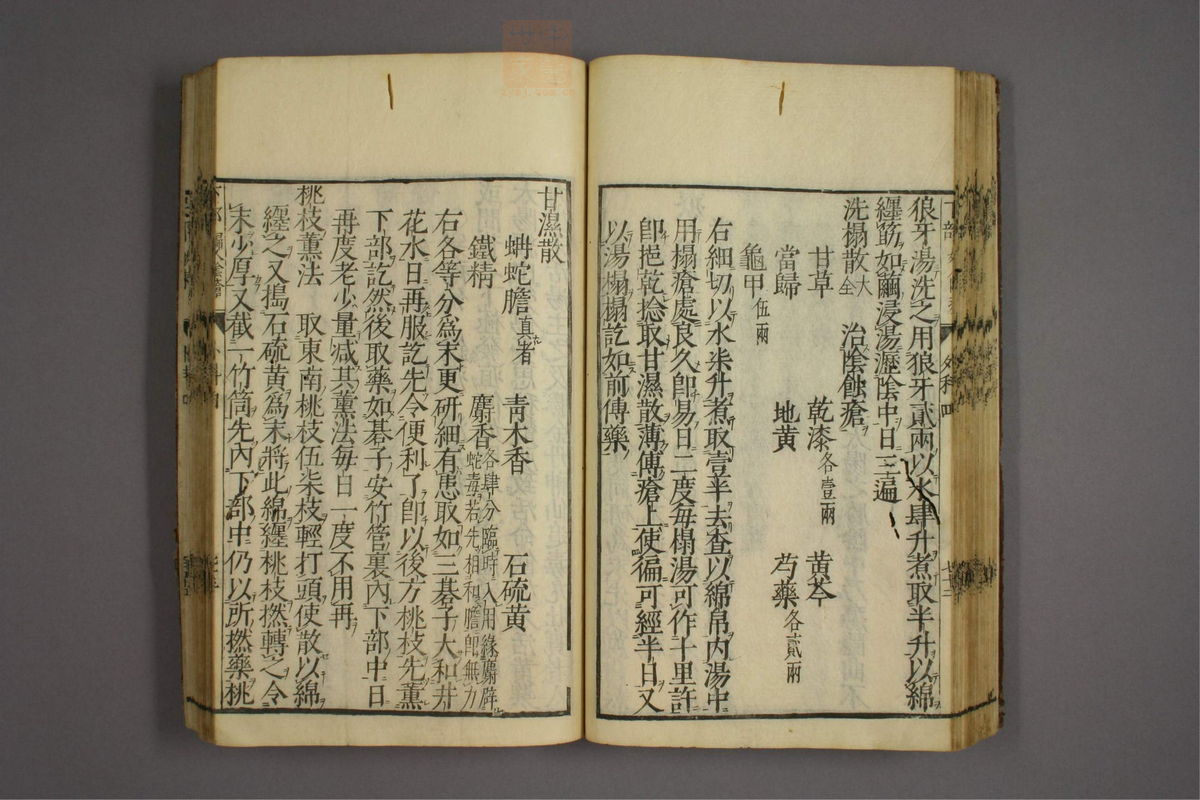 狼牙湯洗之用狼牙貳兩以水肆升煮取半升以綿
纏筯如繭浸湯瀝陰中日三遍
洗搨散 大全 治陰蝕瘡
甘草 乾漆各壹兩 黄芩
當歸 地黄 芍藥各貳兩
龜甲伍兩
右細切以水柒升煮取壹半去查以綿帛内湯中
用搨瘡處良久卽易日二度每搨湯可作十里許
卽挹乾捻取甘濕散薄傅瘡上使徧可經半日又
以湯搨搨訖如前傅藥
甘濕散
蚺蛇膽真者 靑木香 石硫黄
鐵精 麝香各肆分臨時入用緣麝辟蛇毒若先相和膽卽無力
右各等分爲末更研細有患取如三碁子大和井
花水日再服訖先令便利了卽以後方桃枝先薰
下部訖然後取藥如碁子安竹管裏內下部中日
再度老少量減其薰法每日一度不用再
桃枝薰法 取東南桃枝伍柒枝輕打頭使散以綿
纒之又搗石硫黄爲末將此綿纒桃枝撚轉之令
末少厚又截一竹筒先內下部中仍以所撚藥桃